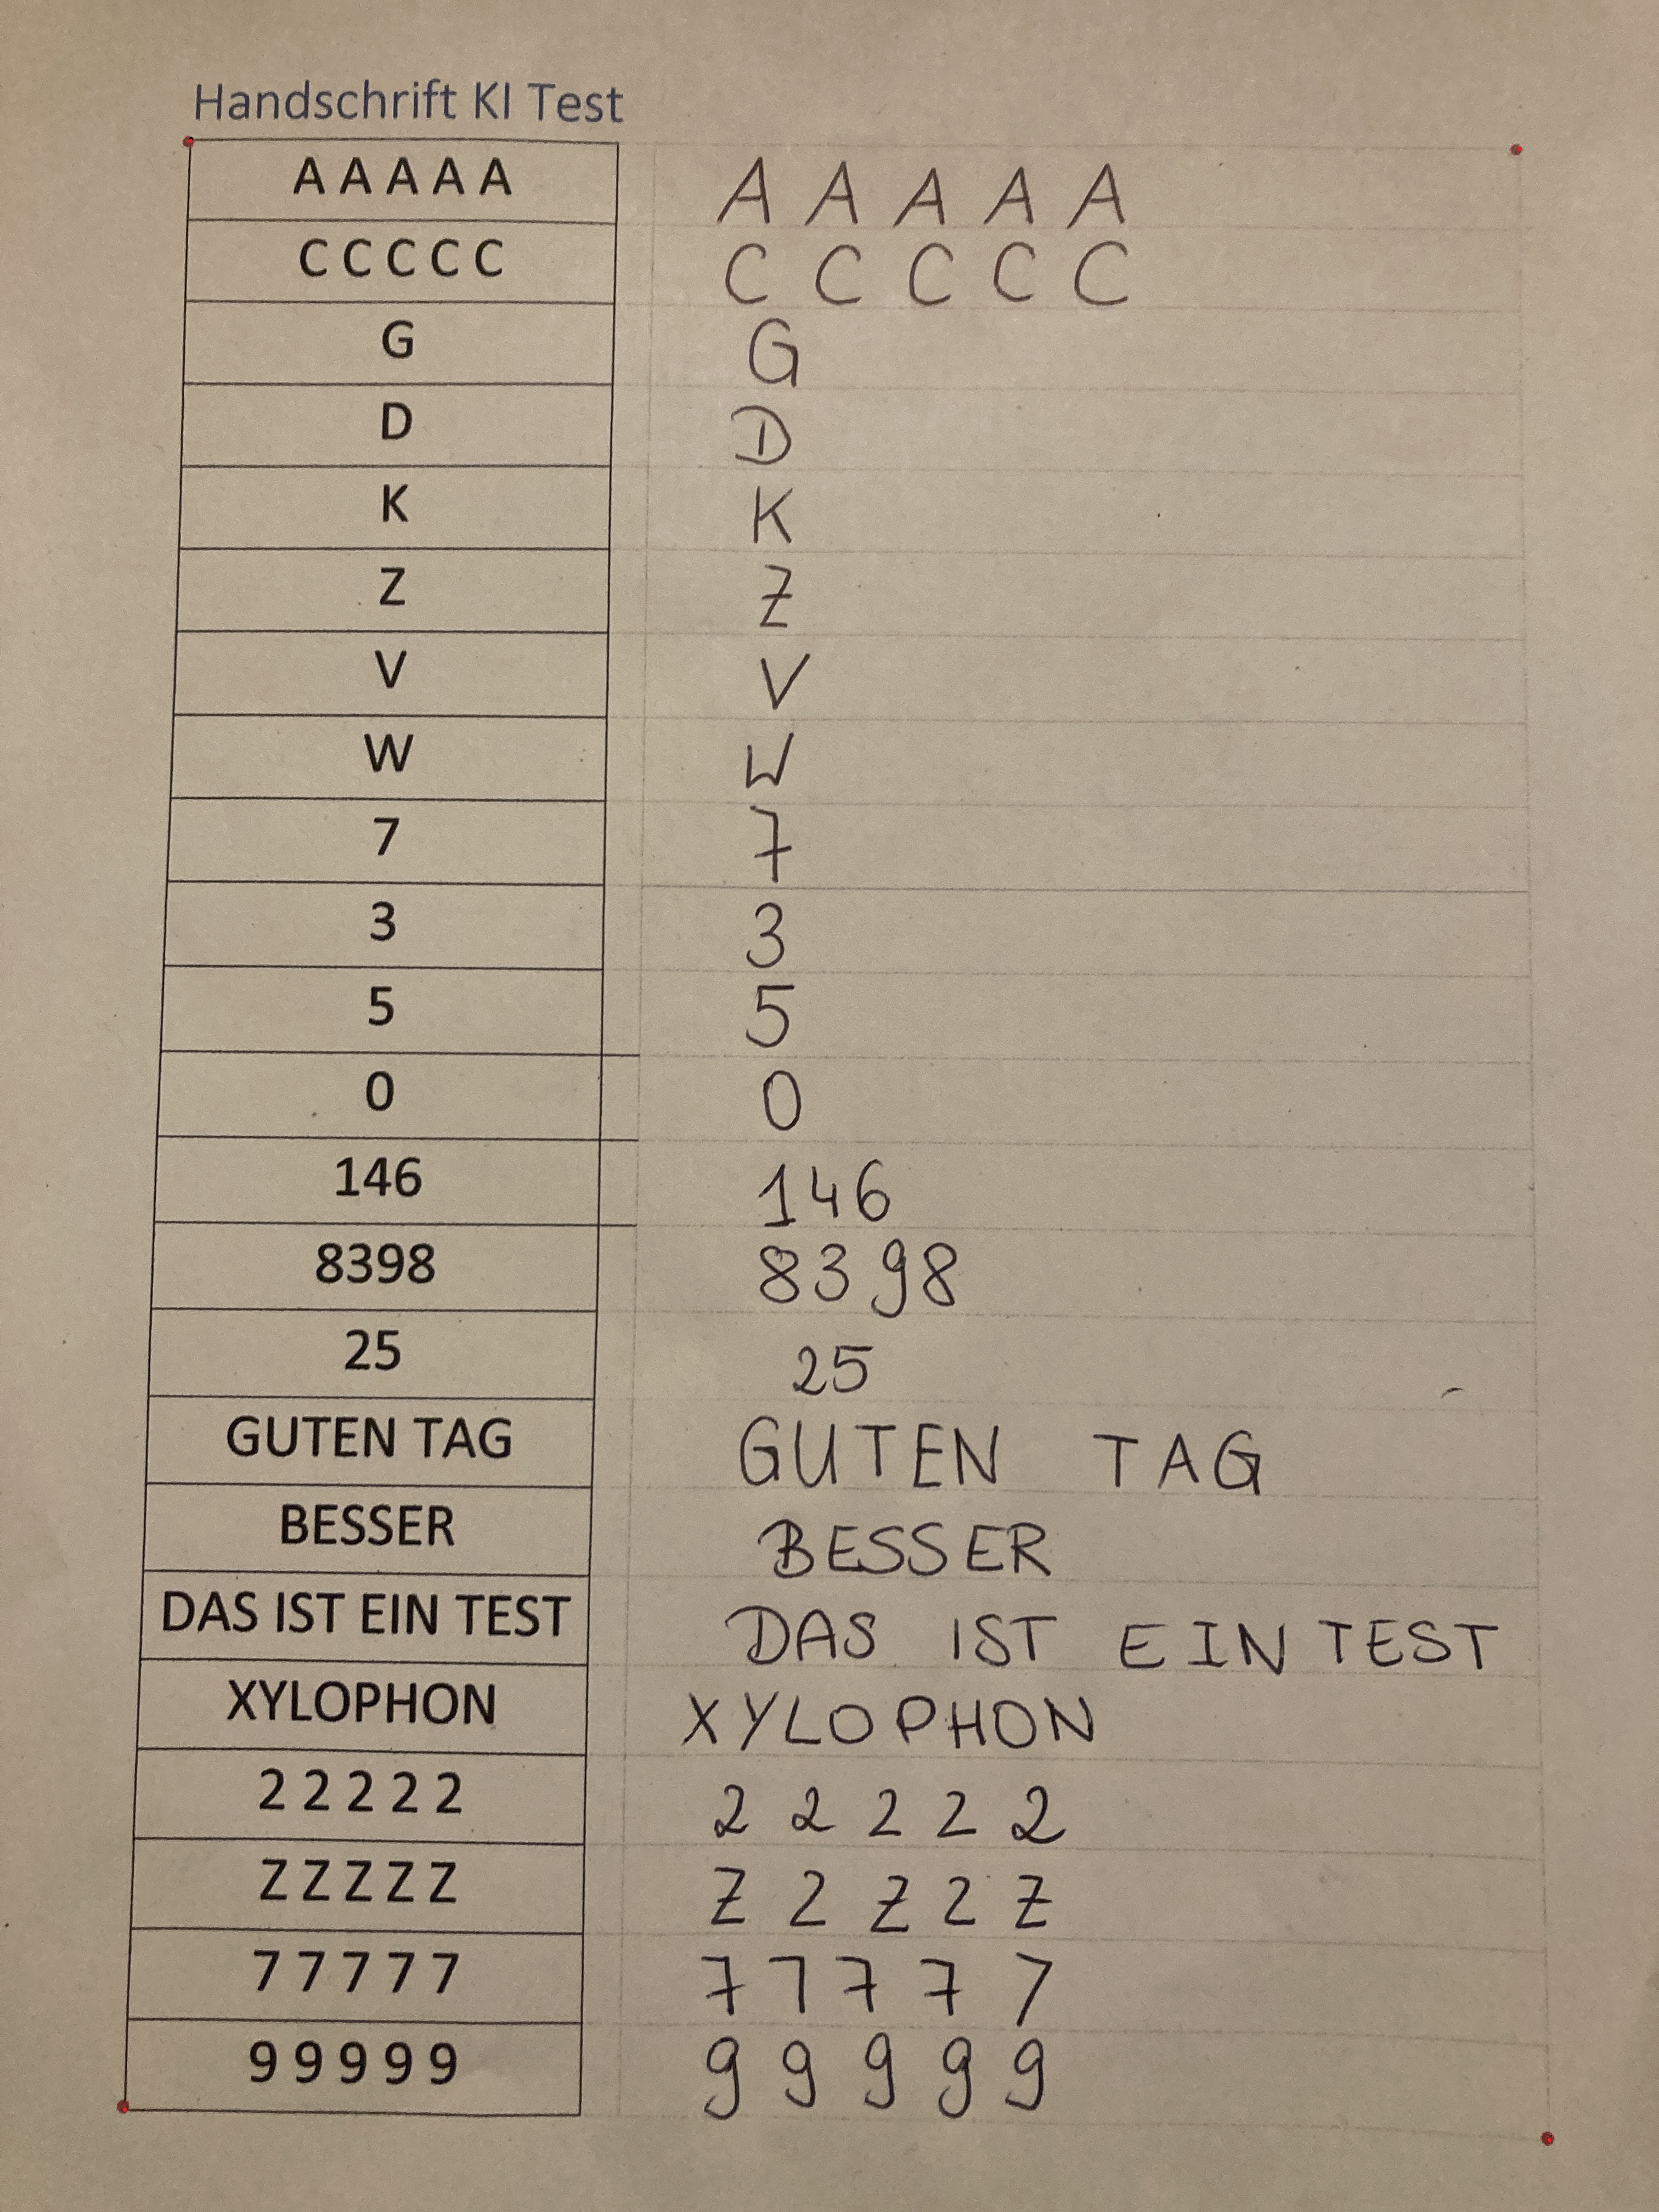 Handschrift KI Test
A A A A A A A A A A
C C C C C C C C C C
G G
D D
K K
Z Z
V V
W W
7 7
3 3
5 5
0 0
146 146
8398 8398
25 25
GUTEN TAG GUTEN TAG
BESSER BESSER
DAS IST EIN TEST DAS IST EIN TEST
XYLOPHON XYLOPHON
2 2 2 2 2 2 2 2 2 2
Z Z Z Z Z Z 2 Z 2 Z
7 7 7 7 7 7 7 7 7 7
9 9 9 9 9 9 9 9 9 9